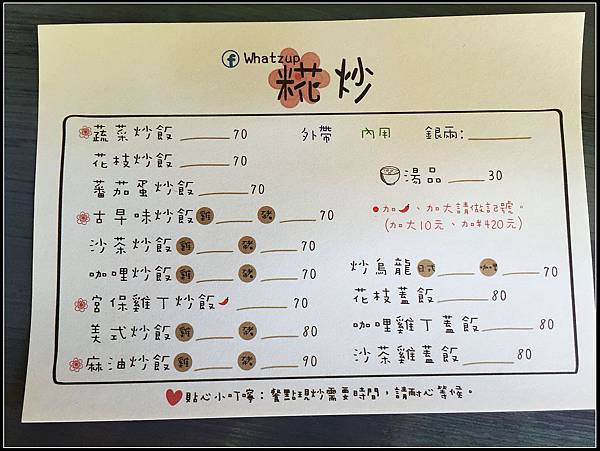 f Whatzup
糀炒
蔬菜炒飯______70
花枝炒飯______70
蕃茄蛋炒飯______70
古早味炒飯 雞____ 豬____70
沙茶炒飯 雞____ 豬____70
咖哩炒飯 雞____ 豬____70
宮保雞丁炒飯______70
美式炒飯 雞____ 豬____80
麻油炒飯 雞____ 豬____90
外帶 內用 銀兩:______
湯品____30
●加🌶、加大請做記號。
(加大10元、加料20元)
炒烏龍 日式____ 咖哩____70
花枝蓋飯____80
咖哩雞丁蓋飯____80
沙茶雞蓋飯____80
貼心小叮嚀：餐點現炒需要時間，請耐心等候。